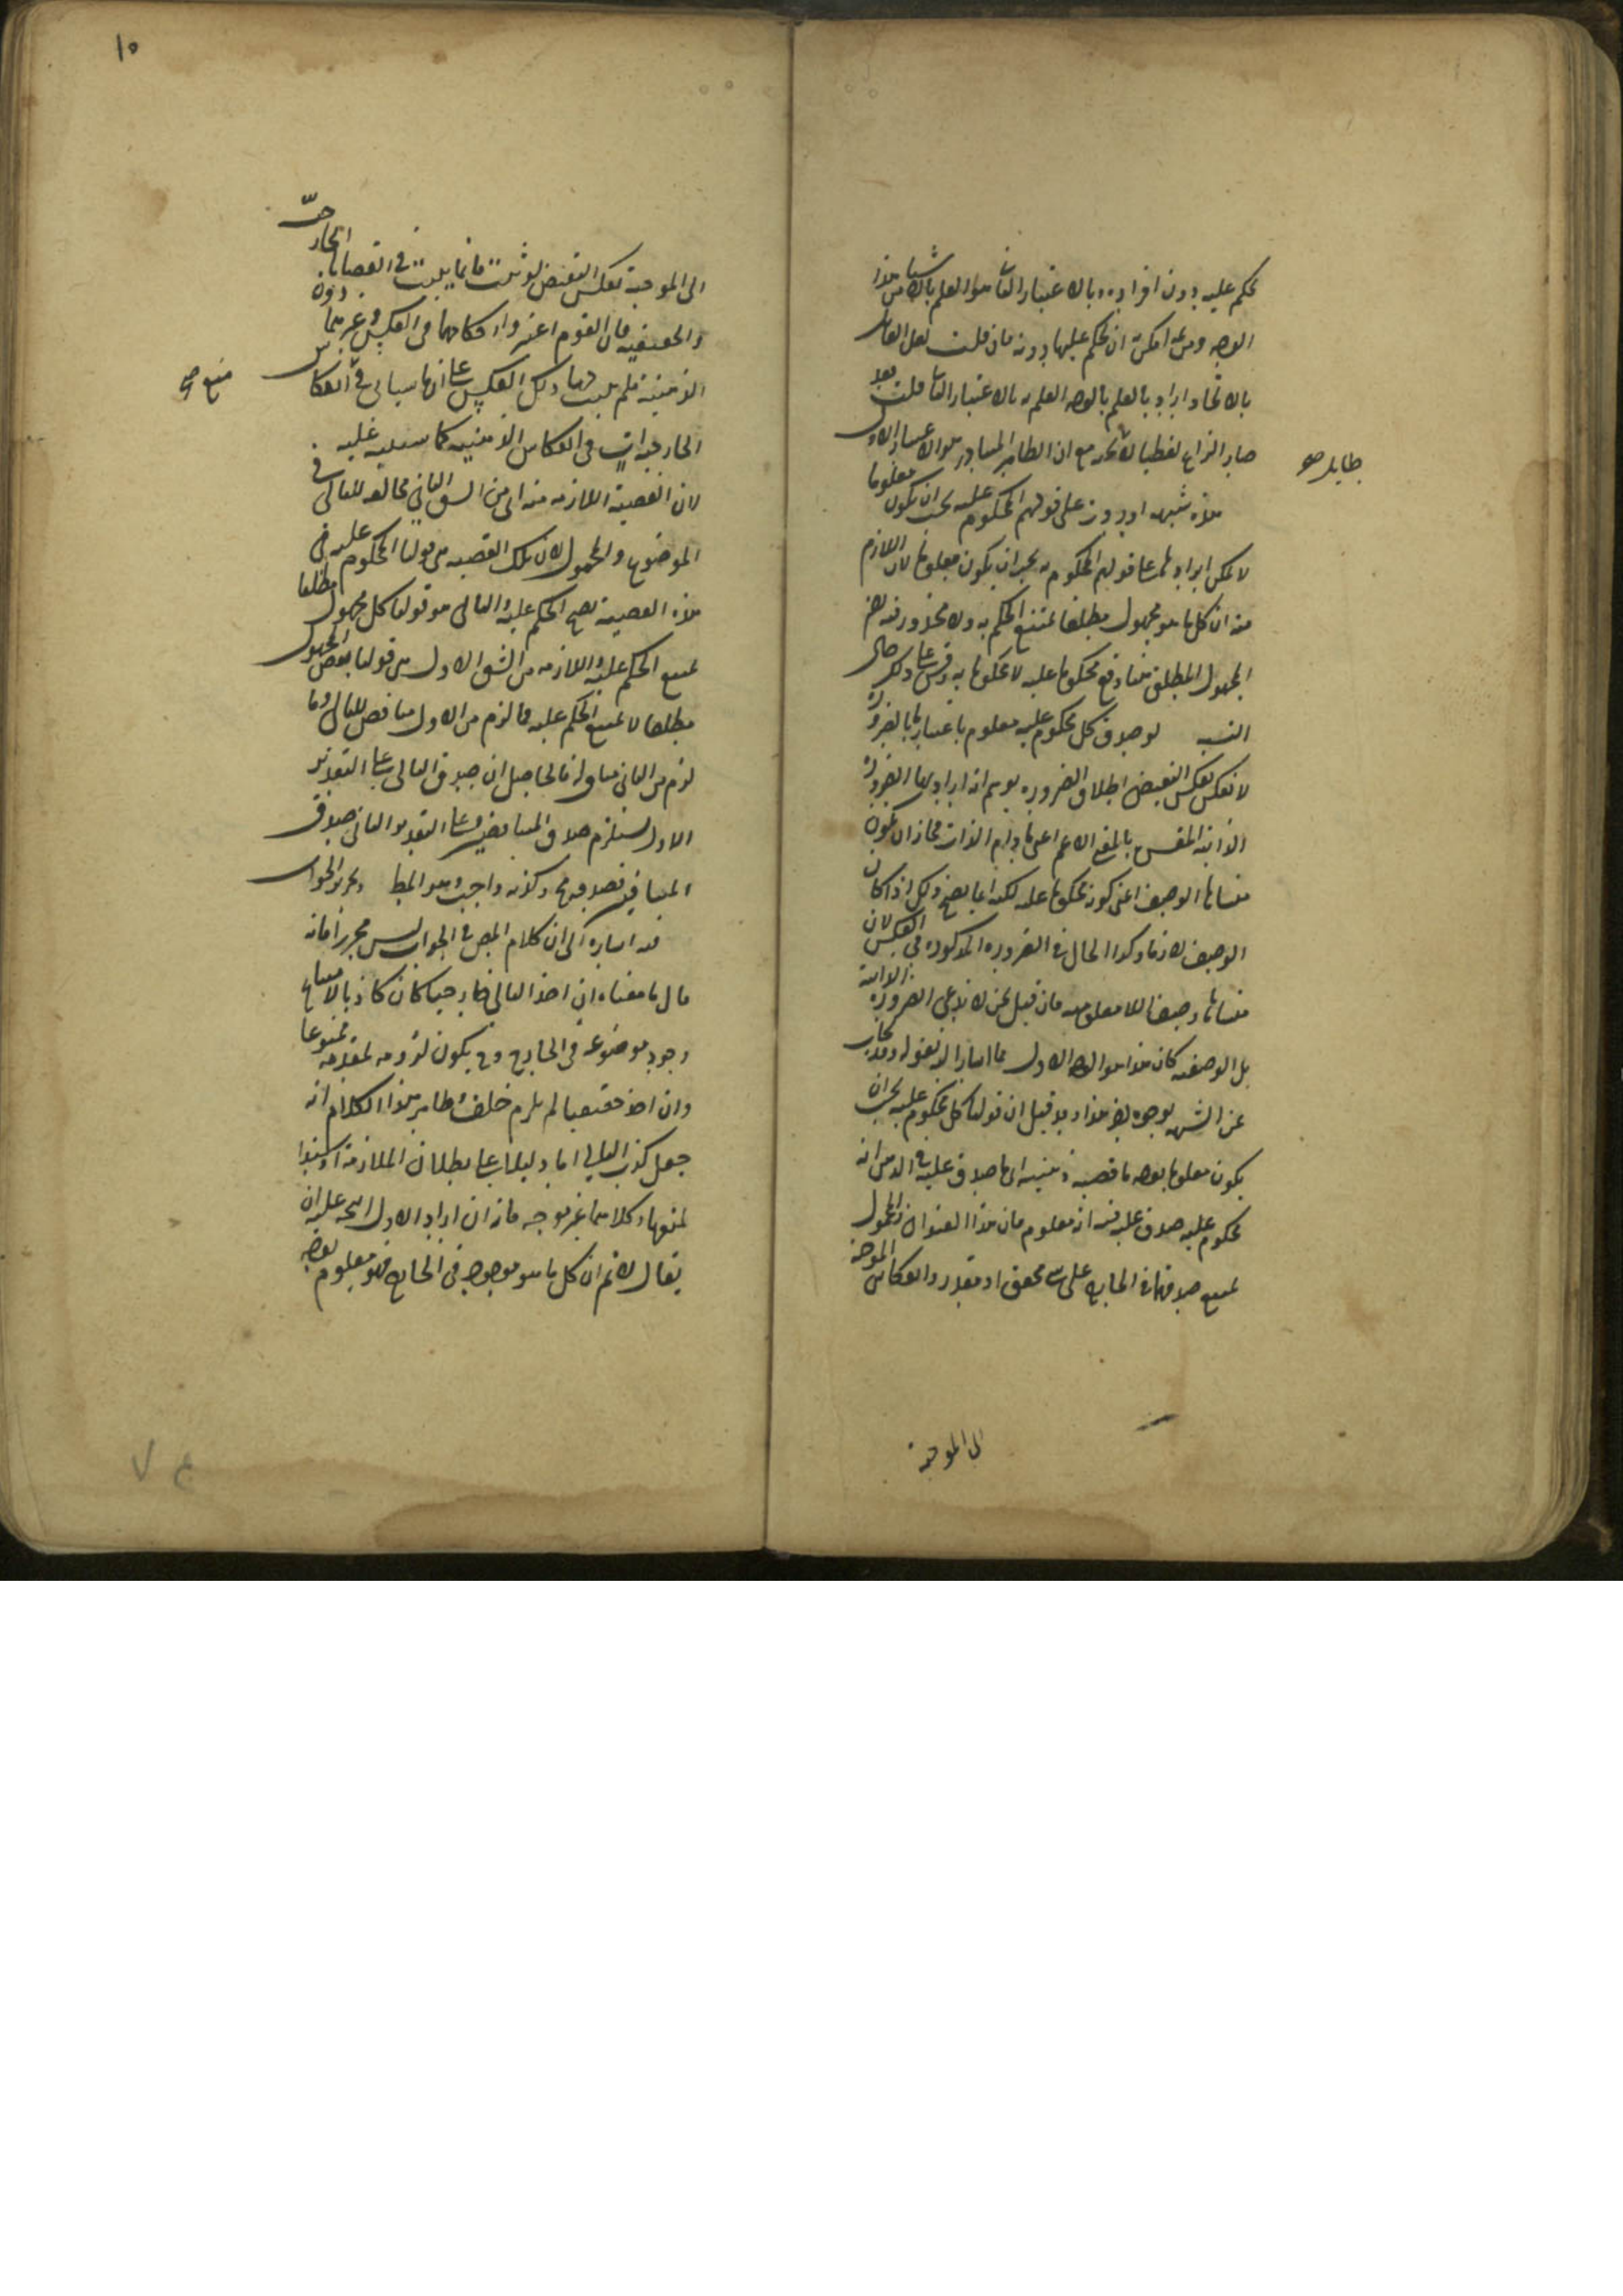 يحكم عليه دون افراده وبالاعتبار الثانى هو العلم بالاشياء من هذا
الوجه ومن ثمه امكن ان يحكم عليها دونه فان قلت لعل القائل
بالاتحاد اراد بالعلم بالوجه العلم به بالاعتبار الثانى قلت فعلى
صار النزاع لفظيا لا مع ان الظاهر المتبادر هو الاعتبار الاول
هذه شبهه اوردوها على قولهم المحكوم عليه يجب ان يكون معلوما
لا يمكن ايرادها على قولهم المحكوم به يجب ان يكون معلوما لان اللازم
منه ان كل ما هو مجهول مطلقا يمتنع الحكم به ولا محذور فيه لان
المجهول المطلق هنا وقع محكوما عليه لا محكوما به وقس على ذلك حال
النسبه لو صدق كل محكوم عليه معلوم باعتبار ما بالضرورة
لانعكس بعكس النقيض اطلاق الضروره يوهم انه اراد بها الضرورة
الذاتية المفسرة بالمعنى الاعم اعنى ما دام الذات فجاز ان يكون
منشأها الوصف اعنى كونه محكوما عليه لكنه انما يصح ذلك اذا كان
الوصف لازما وكذا الحال فى الضروره المذكوره فى العكس لان
منشأها وصف اللا معلوميه فان قيل نحن لا ندعى الضرورة الذاتية
بل الوصفيه كان هذا هو الوجه الاول مما اشار اليه بقوله وقد يجاب
عن الشبهه بوجوه هذا وقد قيل ان قولنا كل محكوم عليه يجب ان
يكون معلوما بوجه ما قضيه ذهنيه اى ما صدق عليه فى الذهن انه
محكوم عليه صدق عليه فيه انه معلوم فان هذا العنوان والمحمول
يمتنع صدقهما فى الخارج على شىء محقق او مقدر وانعكاس الموجبة
الى الموجبة
طايل صح
الى الموجبة بعكس النقيض لو ثبت فانما يثبت فى القضايا الخارجية
والحقيقيه فان القوم اعتبروا احكامهما فى العكس وغيرهما دون
الذهنية فلم يثبت فيها ذلك العكس على انها سيأتى فى انعكاس
الخارجيات فى انعكاس الذهنيه كما سينبه عليه
لان القضية اللازمه منه اى من الشق الثانى مخالفه للتالى فى
الموضوع والمحمول لان تلك القضيه هى قولنا المحكوم عليه فى
هذه القضية يصح الحكم عليه والتالى هو قولنا كل مجهول مطلقا
يمتنع الحكم عليه واللازمه من الشق الاول هى قولنا بعض المجهول
مطلقا لا يمتنع الحكم عليه فما لزم من الاول مناقض للتالى وما
لزم من الثانى مناف له فالحاصل ان صدق التالى على التقدير
الاول يستلزم صدق المتناقضين وعلى التقدير الثانى صدق
المتنافيين فصدقه مح وكذبه واجب وهو المط وتحرير الجواب
فيه اشاره الى ان كلام المص فى الجواب ليس محررا فانه
قال ما معناه ان اخذ التالى خارجيا كان كاذبا لامتناع
وجود موضوعه فى الخارج وح يكون لزومه لمقدمه ممنوعا
وان اخذ حقيقيا لم يلزم خلف وظاهر هذا الكلام انه
جعل كذب التالى اما دليلا على بطلان الملازمة او سندا
لمنعها وكلاهما غير موجه فانه ان اراد الاول اتجه عليه ان
يقال لانم ان كل ما هو موجود فى الخارج فهو معلوم بوجه
منع صح
١٥